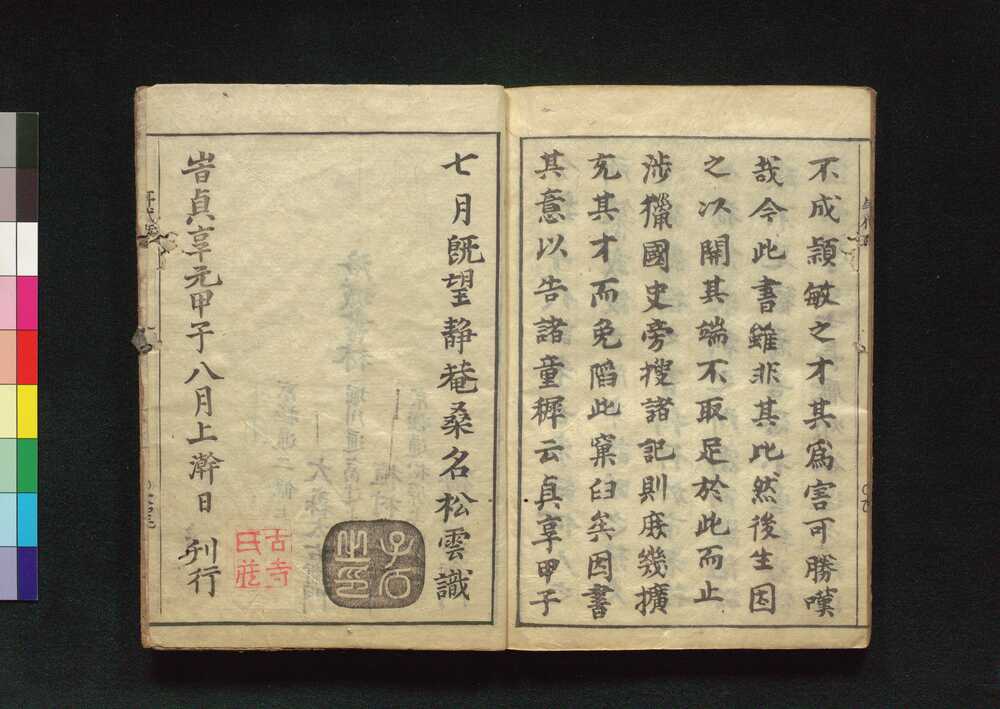 不成頴敏之才其爲害可勝嘆
哉今此書雖非其比然後生因
之以開其端不取足於此而止
涉獵國史旁搜諸記則庶幾擴
充其才而免陷此窠臼矣因書
其意以告諸童穉云貞享甲子
七月旣望靜菴桑名松雲識
子石
之印
旹貞享元甲子八月上澣日　刋行
古寺
氏蔵